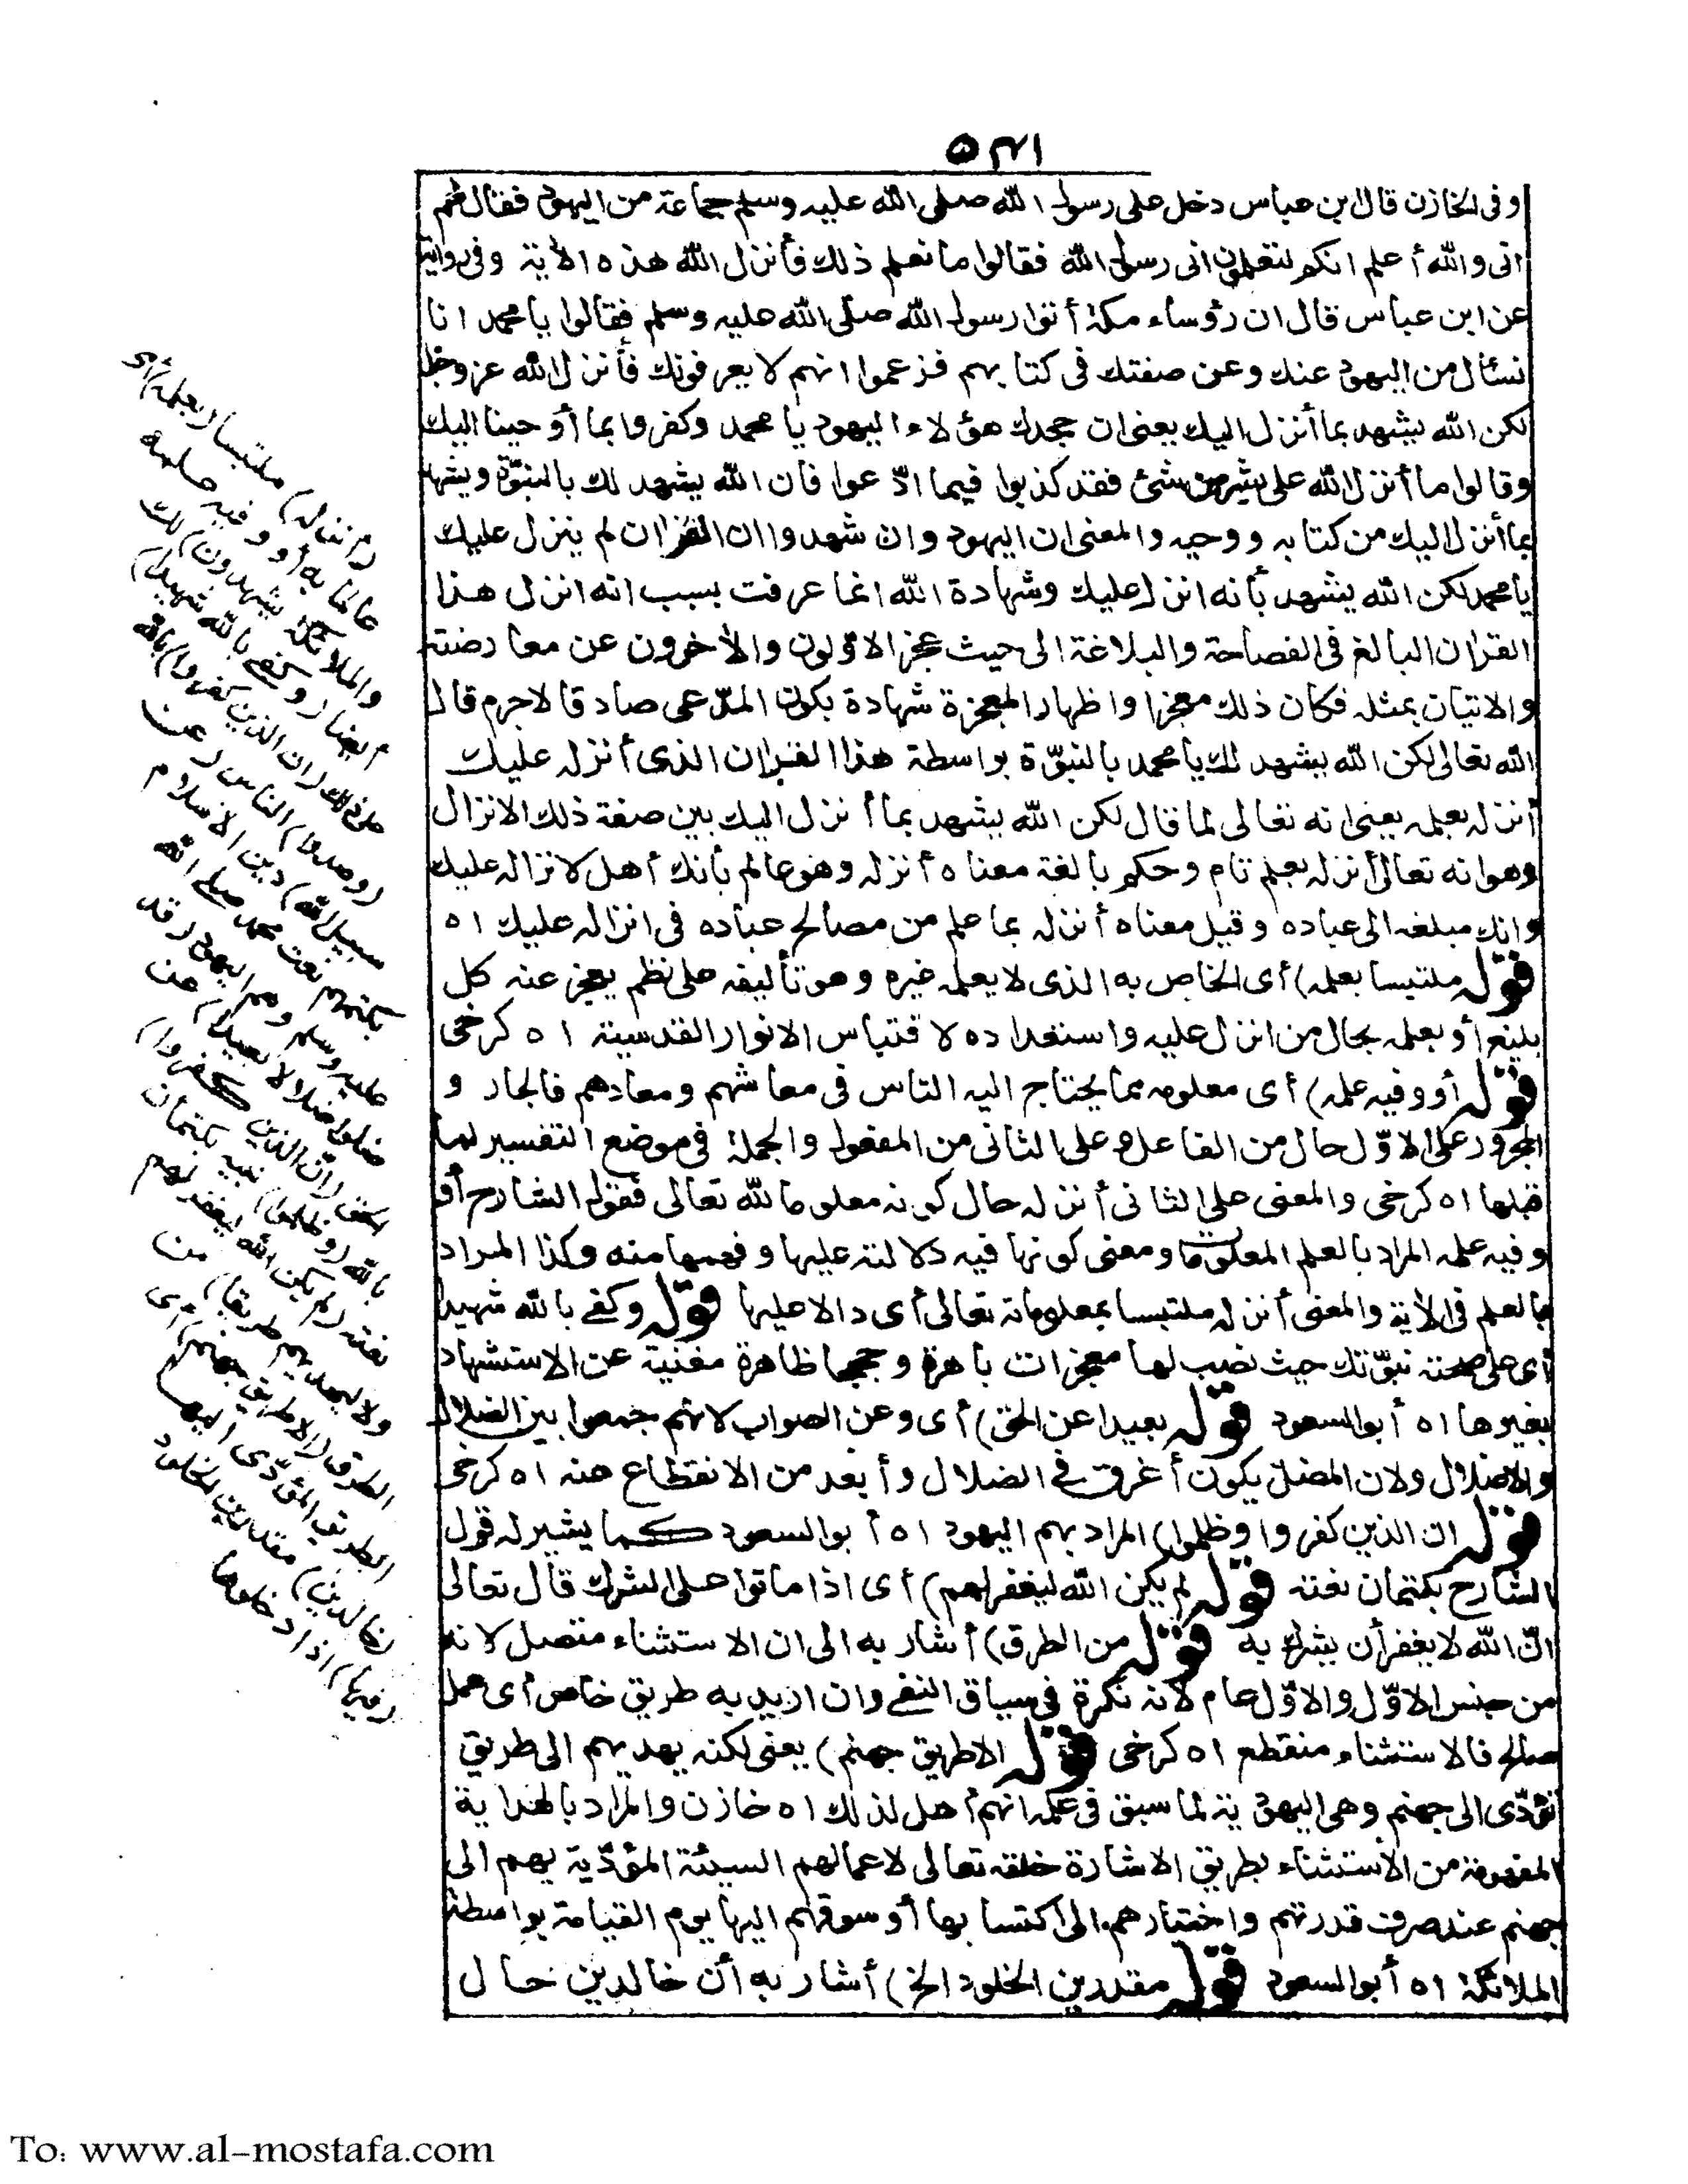 وفى الخازن قال ابن عباس دخل على رسول الله صلى الله عليه وسلم جماعة من اليهود فقال لهم
انى والله أعلم انكم لتعلمون انى رسول الله فقالوا ما نعلم ذلك فأنزل الله هذه الأية وفى رواية
عن ابن عباس قال ان رؤساء مكة أتوا رسول الله صلى الله عليه وسلم فقالوا يا محمد انا
نسئال من اليهود عنك وعن صفتك فى كتابهم فزعموا انهم لا يعرفونك فأنزل الله عز وجل
لكن الله يشهد بما أنزل اليك يعنى ان جحدك هؤلاء اليهود يا محمد وكفروا بما أوحينا اليك
وقالوا ما أنزل الله على بشر من شئ فقد كذبوا فيما ادّعوا فان الله يشهد لك بالنبوّة ويشهد
بما أنزل اليك من كتابه ووحيه والمعنى ان اليهود وان شهدوا ان القران لم ينزل عليك
يا محمد لكن الله يشهد بأنه انزل عليك وشهادة الله انما عرفت بسبب انه انزل هذا
القران البالغ فى الفصاحة والبلاغة الى حيث عجز الاوّلون والأخرون عن معارضته
والاتيان بمثله فكان ذلك معجزا واظهار المعجزة شهادة بكون المدّعى صادقا لاجرم قال
الله تعالى لكن الله يشهد لك يا محمد بالنبوّة بواسطة هذا القران الذى أنزله عليك
أنزله بعلمه يعنى انه تعالى لما قال لكن الله يشهد بما أنزل اليك بين صفة ذلك الانزال
وهو انه تعالى أنزله بعلم تام وحكم بالغة معناه أنزله وهو عالم بأنك أهل لانزاله عليك
وانك مبلغه الى عباده وقيل معناه أنزله بما علم من مصالح عباده فى انزاله عليك اه
قوله ملتبسا بعلمه) أى الخاص به الذى لا يعلمه غيره وهو تأليفه على نظم يعجز عنه كل
بليغ أو بعلمه بحال من انزل عليه واستعداده لاقتباس الانوار القدسية اه كرخى
قوله أو وفيه علمه) أى معلومه مما يحتاج اليه الناس فى معاشهم ومعادهم فالجار و
المجرور على الاوّل حال من الفاعل وعلى الثانى من المفعول والجملة فى موضع التفسير لما
قبلها اه كرخى والمعنى على الثانى أنزله حال كونه معلوما لله تعالى فقول الشارح أو
وفيه علمه المراد بالعلم المعلومات ومعنى كونها فيه دلالته عليها وفهمها منه وكذا المراد
بالعلم فى الأية والمعنى أنزله ملتبسا بمعلوماته تعالى أى دالا عليها قوله وكفى بالله شهيدا
أى على صحة نبوّتك حيث نصب لها معجزات باهرة وحججا ظاهرة مغنية عن الاستشهاد
بغيرها اه أبو السعود قوله بعيدا عن الحق) أى وعن الصواب لانهم جمعوا بين الضلال
والاضلال ولان المضل يكون أغرق فى الضلال وأبعد من الانقطاع عنه اه كرخى
قوله ان الذين كفروا وظلموا) المراد بهم اليهود اه أبو السعود كما يشير له قول
الشارح بكتمان نعته قوله لم يكن الله ليغفر لهم) أى اذا ماتوا على الشرك قال تعالى
انّ الله لا يغفر أن يشرك به قوله من الطرق) أشار به الى ان الاستثناء متصل لانه
من جنس الاوّل والاوّل عام لانه نكرة فى سياق النفى وان اريد به طريق خاص أى عمل
صالح فالاستثناء منقطع اه كرخى قوله الا طريق جهنم) يعنى لكنه يهديهم الى طريق
تؤدّى الى جهنم وهى اليهودية لما سبق فى علمه انهم أهل لذلك اه خازن والمراد بالهداية
المفهومة من الاستثناء بطريق الاشارة خلقه تعالى لاعمالهم السيئة المؤدّية بهم الى
جهنم عند صرف قدرتهم واختيارهم الى اكتسابها أو سوقهم اليها يوم القيامة بواسطة
الملائكة اه أبو السعود قوله مقدرين الخلود الخ) أشار به أن خالدين حال
(انزله) ملتبسا (بعلمه) أى
عالما به أو وفيه علمه
والملائكة يشهدون) لك
أيضا (وكفى بالله شهيدا)
على ذلك (ان الذين كفروا) بالله
(وصدوا) الناس (عن
سبيل الله) دين الاسلام
بكتمهم نعت محمد صلى الله
عليه وسلم وهم اليهود (قد
ضلوا ضلالا بعيدا) عن
الحق (انّ الذين كفروا)
بالله (وظلموا) نبيه بكتمان
نعته (لم يكن الله ليغفر لهم
ولا ليهديهم طريقا) من
الطرق (الا طريق جهنم) أى
الطريق المؤدّى اليها
(خالدين) مقدرين الخلود
(فيها) اذا دخلوها
To: www.al-mostafa.com